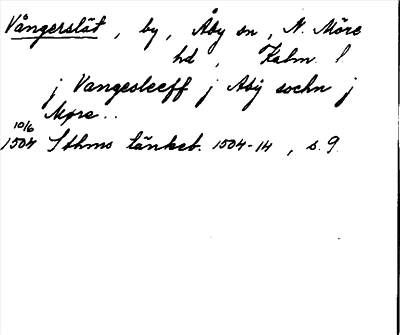 Vångerslät, by, Åby sn, N. Möre
hd, Kalm. l
j Vangesleeff j Aby sochn j
Møre..
10/6
1504 Sthms tänkeb. 1504-14, s. 9.